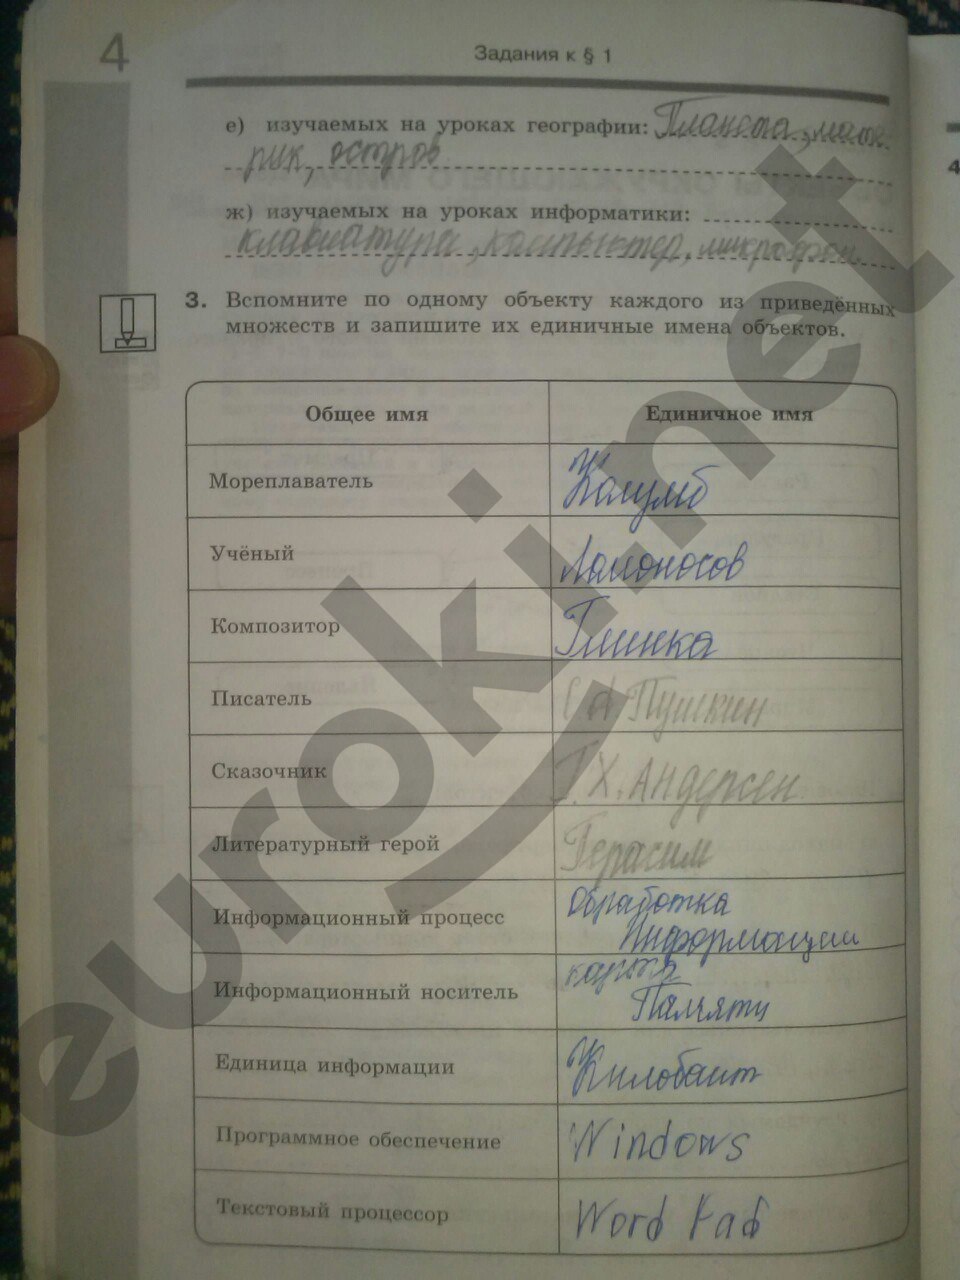 4
Задания к § 1
е) изучаемых на уроках географии: Планета, мате
рик, остров
ж) изучаемых на уроках информатики:
клавиатура, компьютер, микрофон
4
3. Вспомните по одному объекту каждого из приведённых
множеств и запишите их единичные имена объектов.
Общее имя Единичное имя
Мореплаватель Колумб
Учёный Ломоносов
Композитор Глинка
Писатель Пушкин
Сказочник Г.Х. Андерсен
Литературный герой Герасим
Информационный процесс Обработка
Информации
Информационный носитель карта
Памяти
Единица информации Килобайт
Программное обеспечение Windows
Текстовый процессор Word Pad
euroki.net